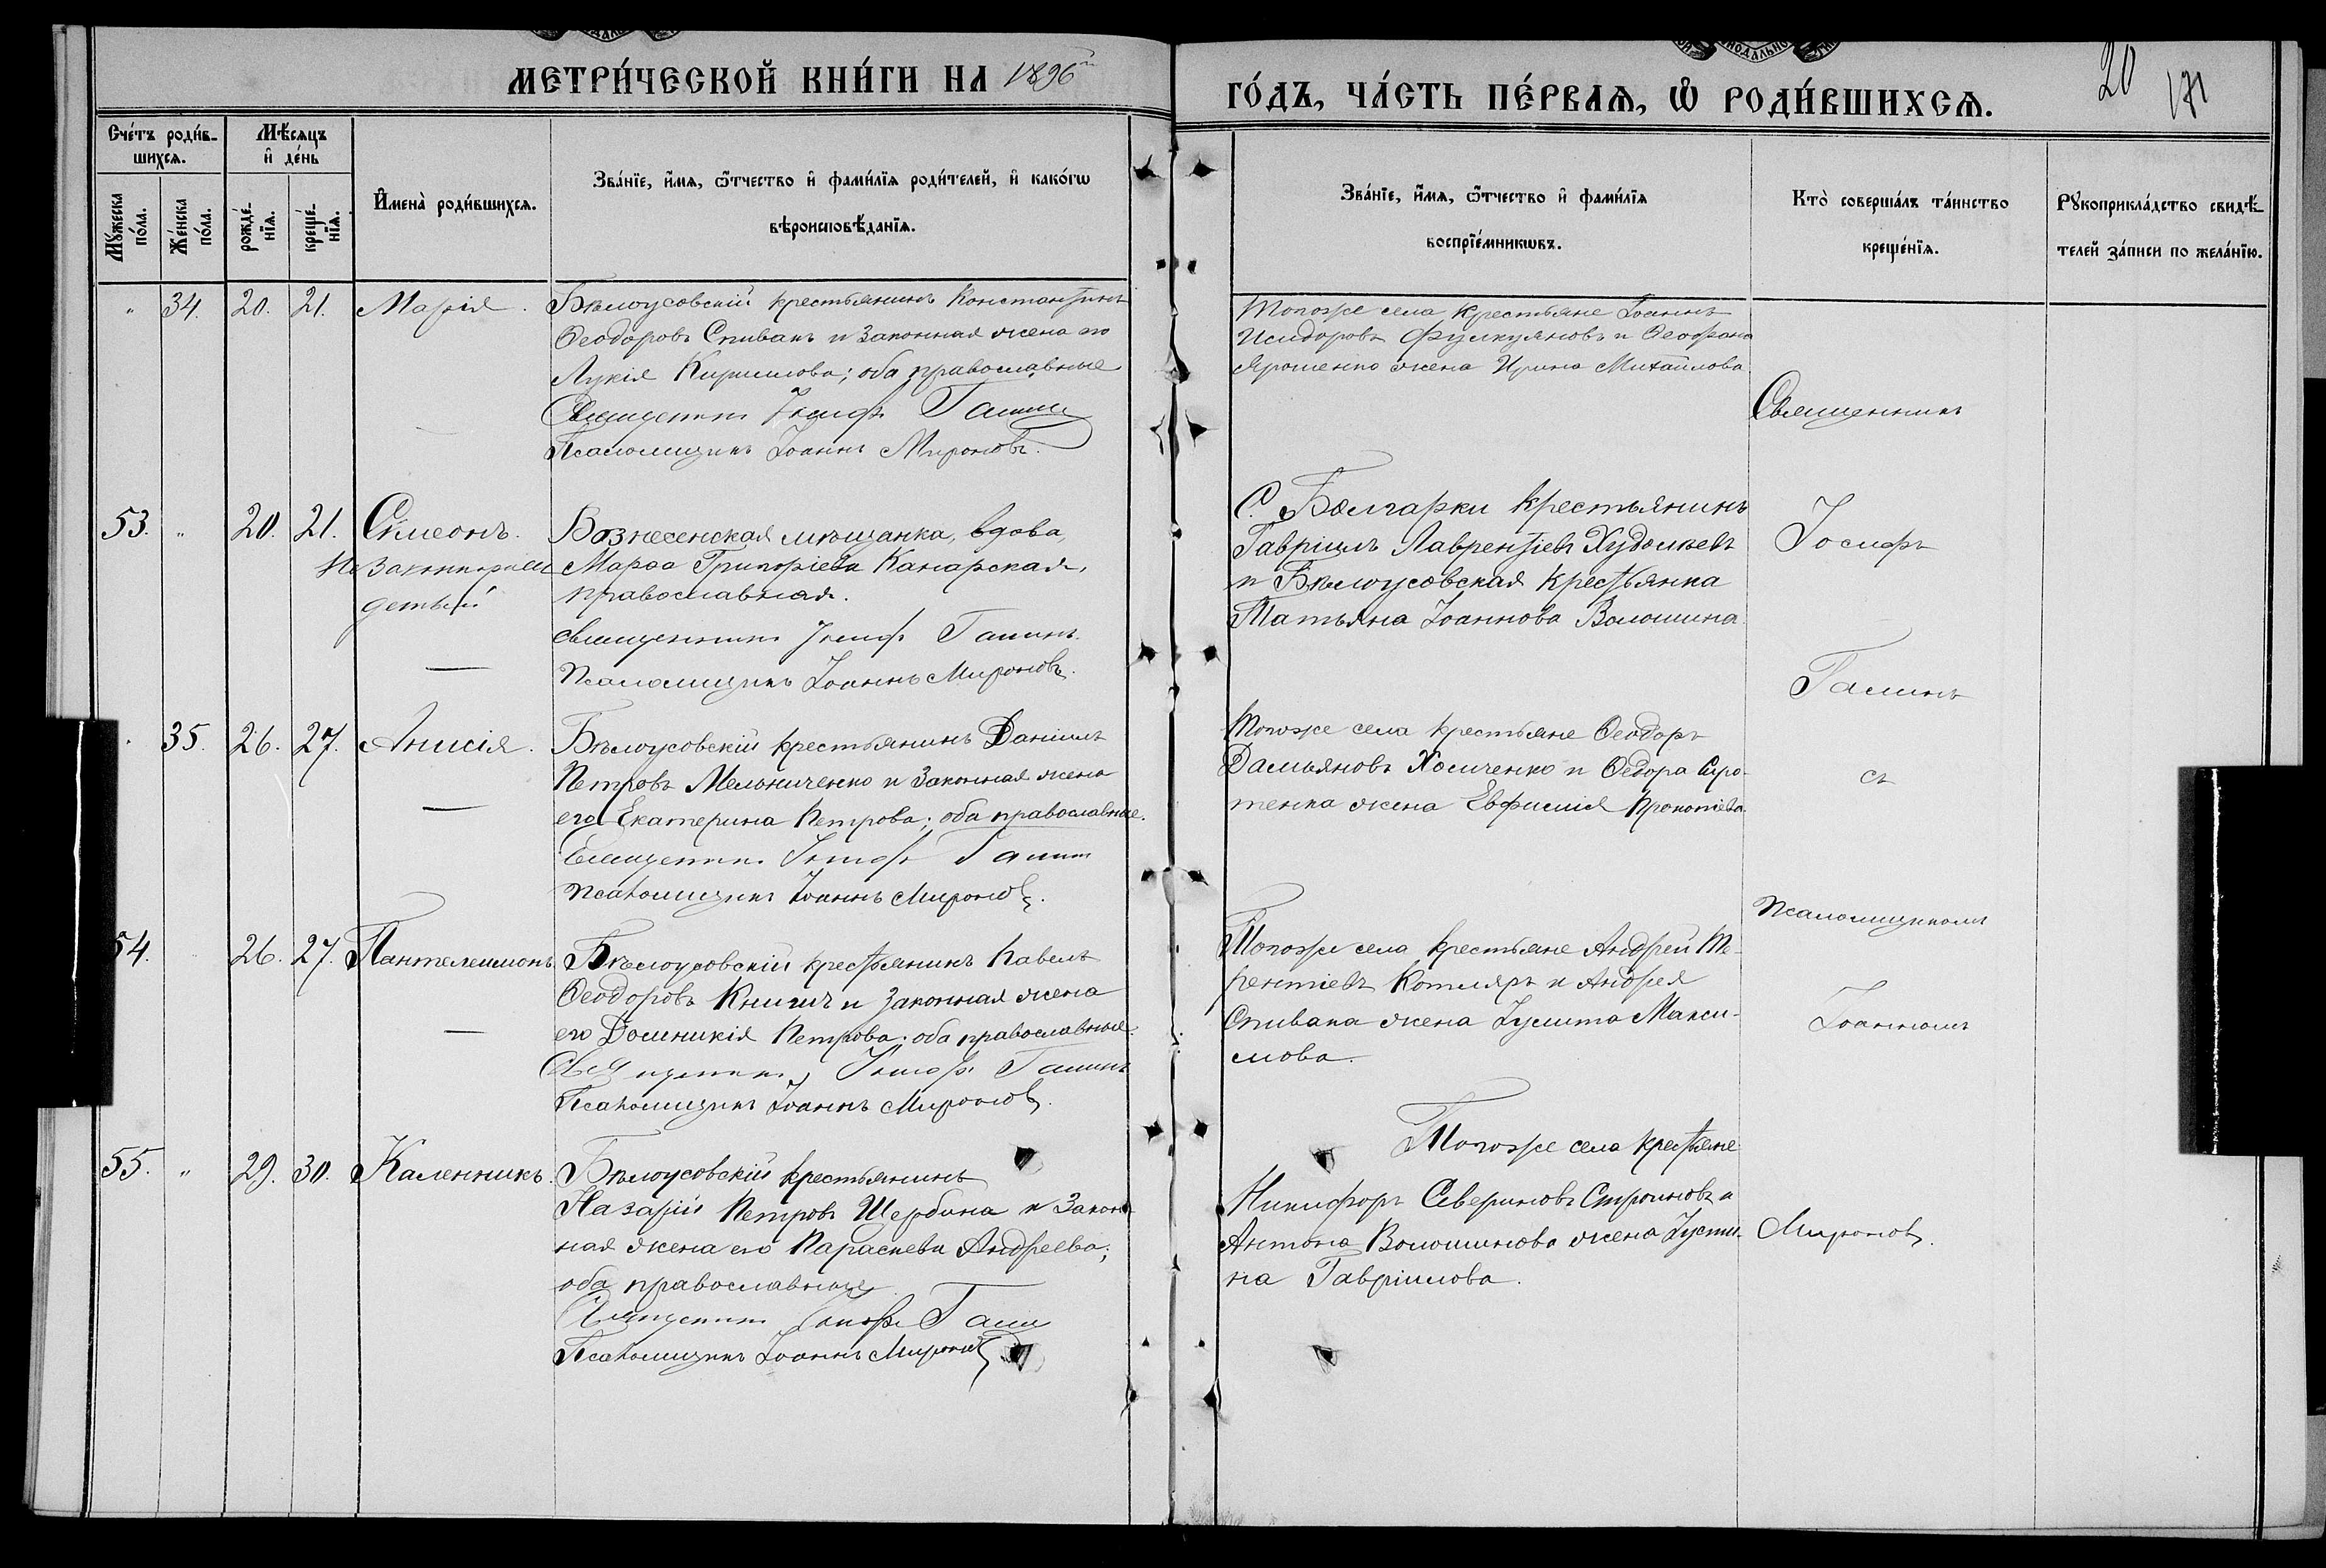 МЕТРИ́ЧЕСКОЙ КНИ́ГИ НА 1896й
ГО́ДЪ, ЧА́СТЬ ПЕ́РВАѦ, Ѽ РОДИ́ВШИХСѦ.
20
171
Сче́тъ роди́в-
шихсѧ.
Мѣ́сѧцъ
и҆ де́нь
Мꙋ́жеска по́ла.
Же́нска по́ла.
рожде́-
нїѧ.
креще́-
нїѧ.
И҆мена̀ роди́вшихсѧ.
Зва́нїе, и҆́мѧ, ѻ҆́тчество и҆ фами́лїѧ роди́телей, и҆ како́гѡ
вѣроисповѣ́данїѧ.
Зва́нїе, и҆́мѧ, ѻ҆́тчество и҆ фами́лїѧ
воспрїе́мникѡвъ.
Кто̀ соверша́лъ та́инство
креще́нїѧ.
Рꙋкоприкла́дство свидѣ́-
телей за́писи по жела́нїю.
" 34. 20. 21. Марія. Бѣлоусовскій крестьянинъ Константинъ
Ѳеодоровъ Спивакъ и законная жена его
Лукія Кириллова; оба православные
Священникъ Іосифъ Галинъ
Псаломщикъ Іоаннъ Мироновъ.
Тогоже села крестьяне Іоаннъ
Исидоровъ и Ѳеофана
Ярошенко жена Ирина Михайлова
53. " 20. 21. Сѵмеонъ. Вознесенская мѣщанка, вдова,
Незаконорож
денный
Марѳа Григоріева Канарская,
православная.
священникъ Іосифъ Галинъ.
Псаломщикъ Іоаннъ Мироновъ.
С. Болгарки крестьянинъ
Гавріилъ Лаврентіевъ Худолѣевъ
и Бѣлоусовская крестьянка
Татьяна Іоаннова Волошина.
35. 26. 27. Анисія. Бѣлоусовскій крестьянинъ Даніилъ
Петровъ Мельниченко и законная жена
его Екатерина Петрова; оба православные.
Священникъ Іосифъ Галинъ
Псаломщикъ Іоаннъ Мироновъ.
Тогоже села крестьяне Ѳеодоръ
Дамьяновъ Хомченко и Ѳедора Сиро-
тенка жена Евфимія Прокопіева.
54. 26. 27. Пантелеимонъ Бѣлоусовскій крестьянинъ Павелъ
Ѳеодоровъ Книгич и законная жена
его Домникія Петрова; оба православные.
Священникъ Іосифъ Галинъ
Псаломщикъ Іоаннъ Мироновъ.
Тогоже села крестьяне Андрей Те-
рентіевъ Котляръ и Андрея
Спивака жена Іулита Макси-
мова.
55. " 29. 30. Каленникъ. Бѣлоусовскій крестьянинъ
Назарій Петровъ Щербина и закон
ная жена его Параскева Андреева;
оба православные
Священникъ Іосифъ Галинъ
Псаломщикъ Іоаннъ Мироновъ
Тогоже села крестьяне
Никифоръ Севериновъ Строиновъ и
Антона Волошинова жена Іусти-
на Гавріилова.
Священникъ
Іосифъ
Галинъ
съ
Псаломщикомъ
Іоанномъ
Мироновъ.